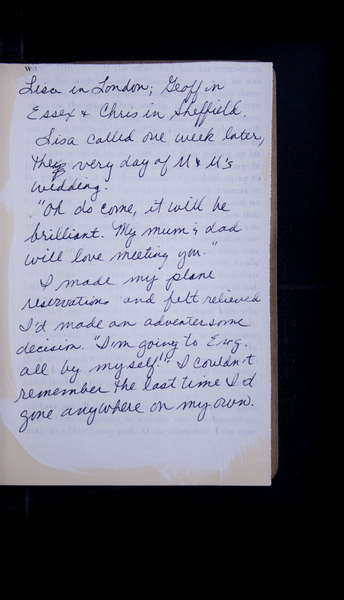 Lisa in London; Geoff in
Essex & Chris in Sheffield.
Lisa called one week later,
the very day of M & M's
wedding.
"Oh do come, it will be
brilliant. My mum & dad
will love meeting you."
I made my plane
reservations and felt relieved
I'd made an adventersome
decision. "I'm going to Eng.
all by myself!" I couldn't
remember the last time I'd
gone anywhere on my own.